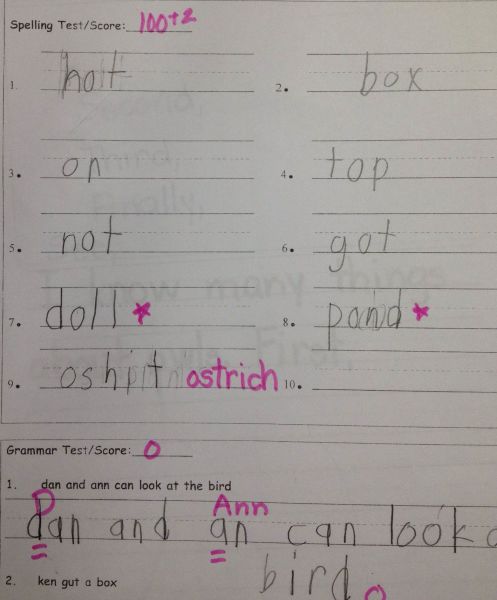 Spelling Test/Score: 100+2
1. hot 2. box
3. on 4. top
5. not 6. got
7. doll * 8. pond *
9. oshit ostrich 10.
Grammar Test/Score: 0
1. dan and ann can look at the bird
D Ann
dan and an can look
bird.
2. ken gut a box